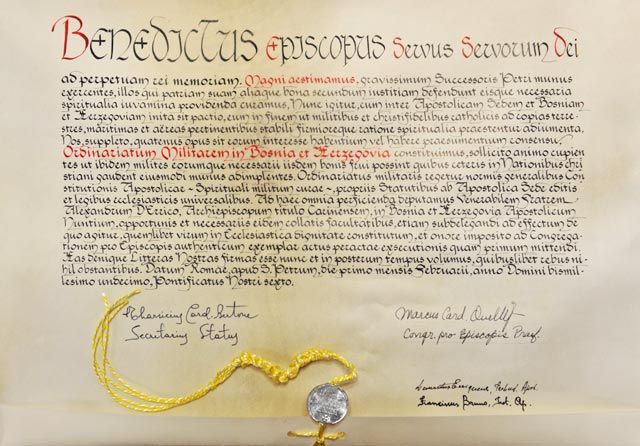 Benedictus Episcopus Servus Servorum Dei
ad perpetuam rei memoriam. Magni aestimamus, gravissimum Successoris Petri munus
exercentes, illos qui patriam suam aliaque bona secundum iustitiam defendunt eisque necessaria
spiritualia iuvamina providenda curamus. Nunc igitur, cum inter Apostolicam Sedem et Bosniam
et Herzegoviam inita sit pactio, eum in finem ut militibus et christifidelibus catholicis ad copias terre-
stres, maritimas et aëreas pertinentibus stabili firmioreque ratione spiritualia praestentur adiumenta,
Nos, suppleto, quatenus opus sit eorum interesse habentium vel habere praesumentum consensu,
Ordinariatum Militarem in Bosnia et Herzegovia constituimus, sollicito animo cupien
tes ut ibidem milites eorumque necessarii iisdem bonis frui possint quibus ceteris in Nationibus chri
stiani gaudent eiusmodi munus adimplentes. Ordinariatus militaris regetur normis generalibus Con
stitutionis Apostolicae - Spirituali militum curae -, propriis Statutibus ab Apostolica Sede editis
et legibus ecclesiasticis universalibus. Ad haec omnia perficienda deputamus Venerabilem Fratrem
Alexandrum D'Errico, Archiepiscopum titulo Carinensem, in Bosnia et Herzegovia Apostolicum
Nuntium, opportunis et necessariis eidem collatis facultatibus, etiam subdelegandi ad effectum de
quo agitur, quemlibet virum in Ecclesiastica dignitate constitutum, et onore imposito ad Congrega
tionem pro Episcopis authenticum exemplar actus peractae exsecutionis quam primum mittendi.
Has denique Litteras Nostras firmas esse nunc et in posterum tempus volumus, quibuslibet rebus ni-
hil obstantibus. Datum Romae, apud S. Petrum, die primo mensis Februarii, anno Domini bismil
lesimo undecimo, Pontificatus Nostri sexto.
Tharcicius Card. Bertone
Secretarius Status
Marcus Card. Ouellet
Congr. pro Episcopis Praef.
Franciscus Bruno,